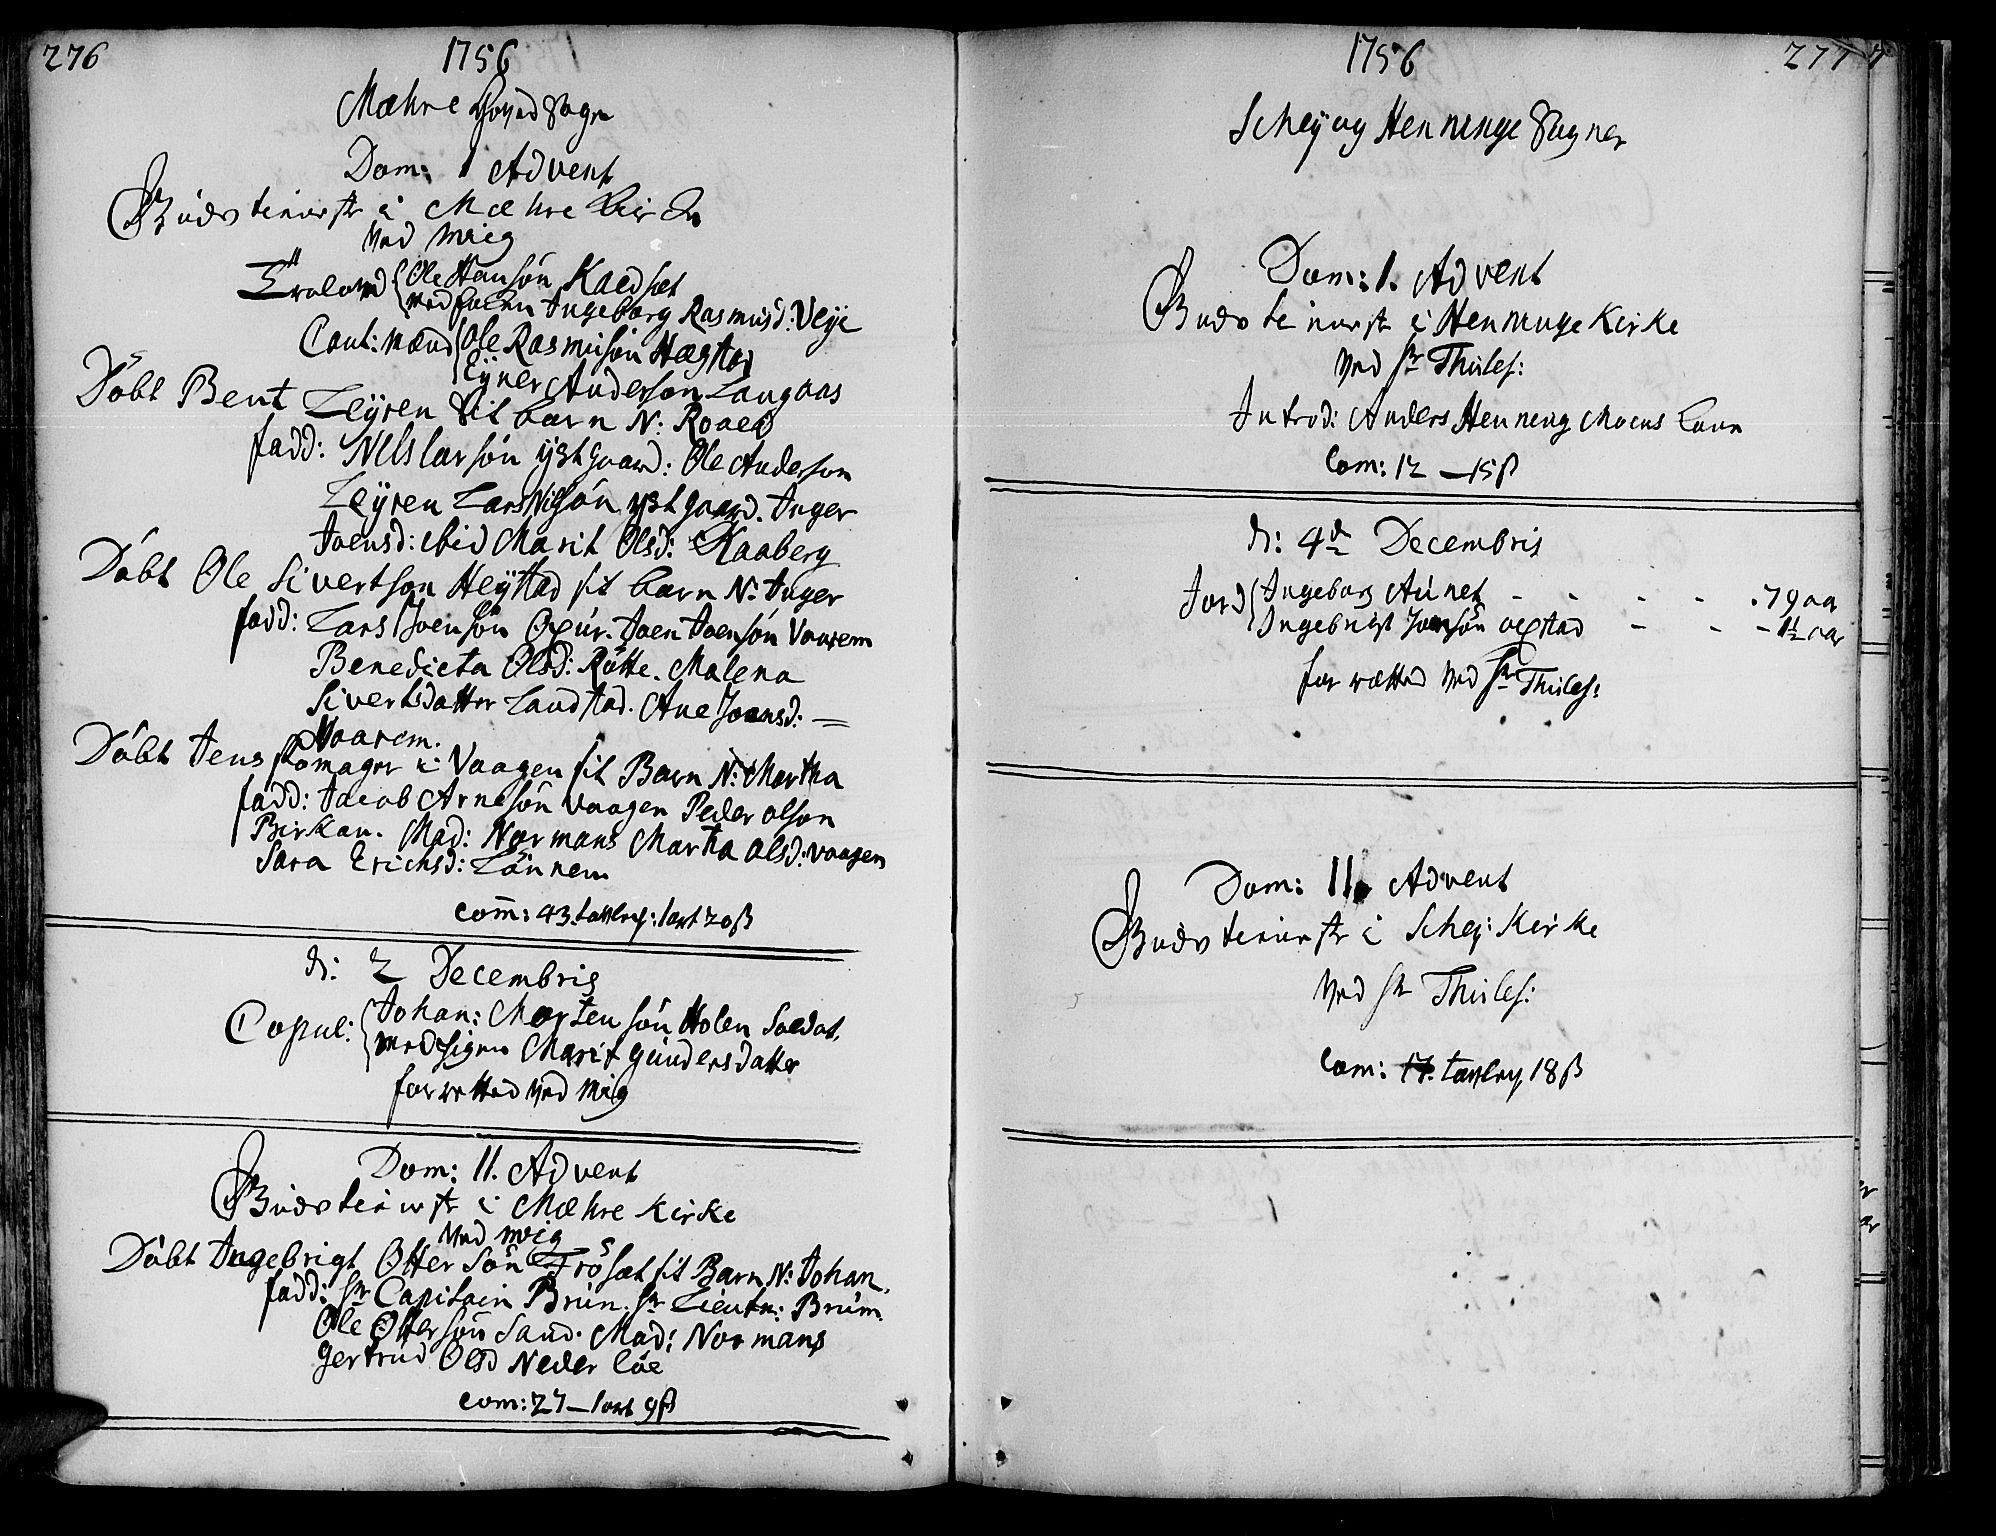 276
1756
Mæhre Hoved Sogn
Dom: 1 Advent
Gudstienneste i Mæhre Kircke
ved mig
Trolovd Ole Hansön Kaldset
med Enken Ingeborg Rasmusd: Veÿe
Caut: mænd Ole Rasmusön Hægstad
Eÿner Anderson Langaas
Döbt Bent Leÿren sit barn N: Roaeld
fadd: Nels larsön ÿstgaard: Ole Anderson
Leÿren Lars Nilsön ystgaard. Inger
Joensd: ibid Marit Olsd: Kaaberg
Döbt Ole Sivertson Heÿstad sit barn N: Inger
fadd: Lars Joensön Oxür. Joen Joensön Vaarem
Benedicta Olsd: Rötte. Malena
Sivertsdatter Landstad. Ane Joensd:
Vaarem.
Döbt Jens skomager i Vaagen sit Barn N: Martha
fadd: Jacob Arnesön Vaagen Peder olson
Birkan. Mad: Normans Martha olsd: vaagen
Sara Erichsd: Lönnem
Com: 43 tavlep: lort 20 ß
d: 2 Decembris
Copul: Johan: Mortensön Holen Soldat,
med Pigen Marit Gundersdatter
forretted ved mig
Dom: 11. Advent
Gudstienneste i Mæhre Kirke
ved mig
Döbt Ingebrigt Ottersön Fröset sit Barn N: Johan,
fadd: Hr Capitain Brün. Hr Lieutn: Brüm.
Ole Ottersön Sand. Mad: Normans
Gertrud Olsd Neder löe
Com: 27 — lort 9 ß
1756
277
Scheÿ og Henninge Sogner
Dom: 1. Advent
Gudstienneste i Henninge Kirke
ved Hr Thiles:
Introd: Anders Henning Moens Kone
Com: 12 — 15 ß
d: 4de Decembris
Jord Ingeborg Aünet - - - - . 79 aar
Ingebrigt Joensön oexstad - - - 1½ aar
forrætted ved Hr Thiles:
Dom: 11. Advent
Gudstienneste i Schej: Kirke
ved Hr Thiles:
Com: 17. tavlep 18 ß